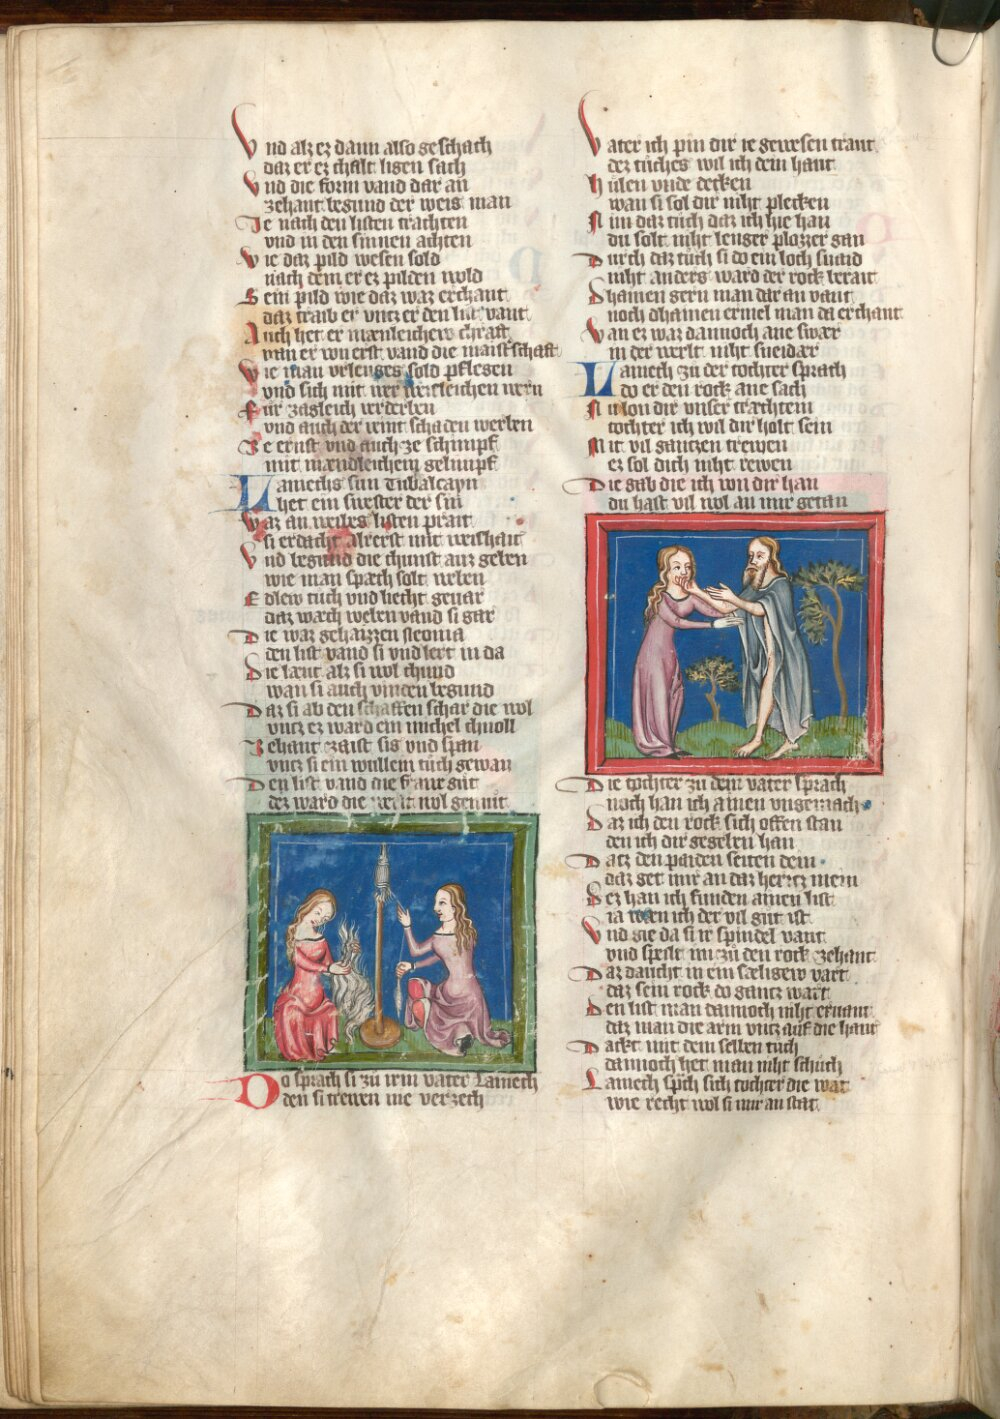 Vnd alz ez dann also geschach
daz er ez chalt ligen sach
Vnd die form vand dar an
zehant begund der weis man
Ie nach den listen trachten
vnd in den sinnen achten
Wie daz pild wesen sold
nach dem er ez pilden wold
Sein pild wie daz waz erchant
daz traib er vncz er den list vant
Auch het er mænleichew chraft
wan er von erst vand die maistschaft
Wie man vrleuges sold pflegen
vnd sich mit wer werleichen wern
Für zagleich verderben
vnd auch der veint schaden werben
Ze ernst vnd auch ze schimpf
mit mændleichem gelimpf
Lamechs sun Tubalcayn
het ein swester der sin
Waz an weibes listen prait
si erdacht alrerst mit weishait
Vnd begund die chunst auz geben
wie man spæch solt weben
Edlew tuch vnd liecht gevar
daz wæch weben vand si gar
Die waz gehaizzen Neoma
den list vand si vnd lert in da
Die lævt alz si wol chund
wan si auch vinden begund
Daz si ab den schaffen schar die wol
vncz ez ward ein michel chnoll
Zehant zaist sis vnd span
vncz si ein wullein tuch gewan
Den list vand die fraw gut
dez ward die wol gemut
Do sprach si zu irm vater Lamech
den si trewen nie verzech
Vater ich pin dir ie gewesen traut
dez tuches wil ich dein haut
Hülen vnde decken
wan si sol dir niht plecken
Nim daz tuch daz ich hie han
du solt niht lenger plozzer gan
Durch daz tuch si do ein loch snaid
niht anders ward der rock berait
Dhainen gern man dar an vant
noch dhainen ermel man da erchant
Wan ez waz dannoch ane swær
in der werlt niht sneidær
Lamech zu der tochter sprach
do er den rock ane sach
Nu lon dir vnser træchtein
tochter ich wil dir holt sein
Mit vil gantzen trewen
ez sol dich niht rewen
Die gab die ich von dir han
du hast vil wol an mir getan
Die tochter zu dem vater sprach
noch han ich ainen vngemach
Daz ich den rock sich offen stan
den ich dir gegeben han
Datz den paiden seiten dein
daz get mir an daz hertz mein
Dez han ich funden ainen list
ich der vil gut ist
Vnd gie da si ir spindel vant
vnd speilt im zu den rock zehant
Daz daucht in ein sæligew vart
daz sein rock do gantz wart
Den list man dannoch niht ervant
daz man die arm vncz auf die hant
Dackt mit dem selben tuch
dannoch het man niht schuch
Lamech sprach sich tochter die wat
wie recht wol si mir an stat